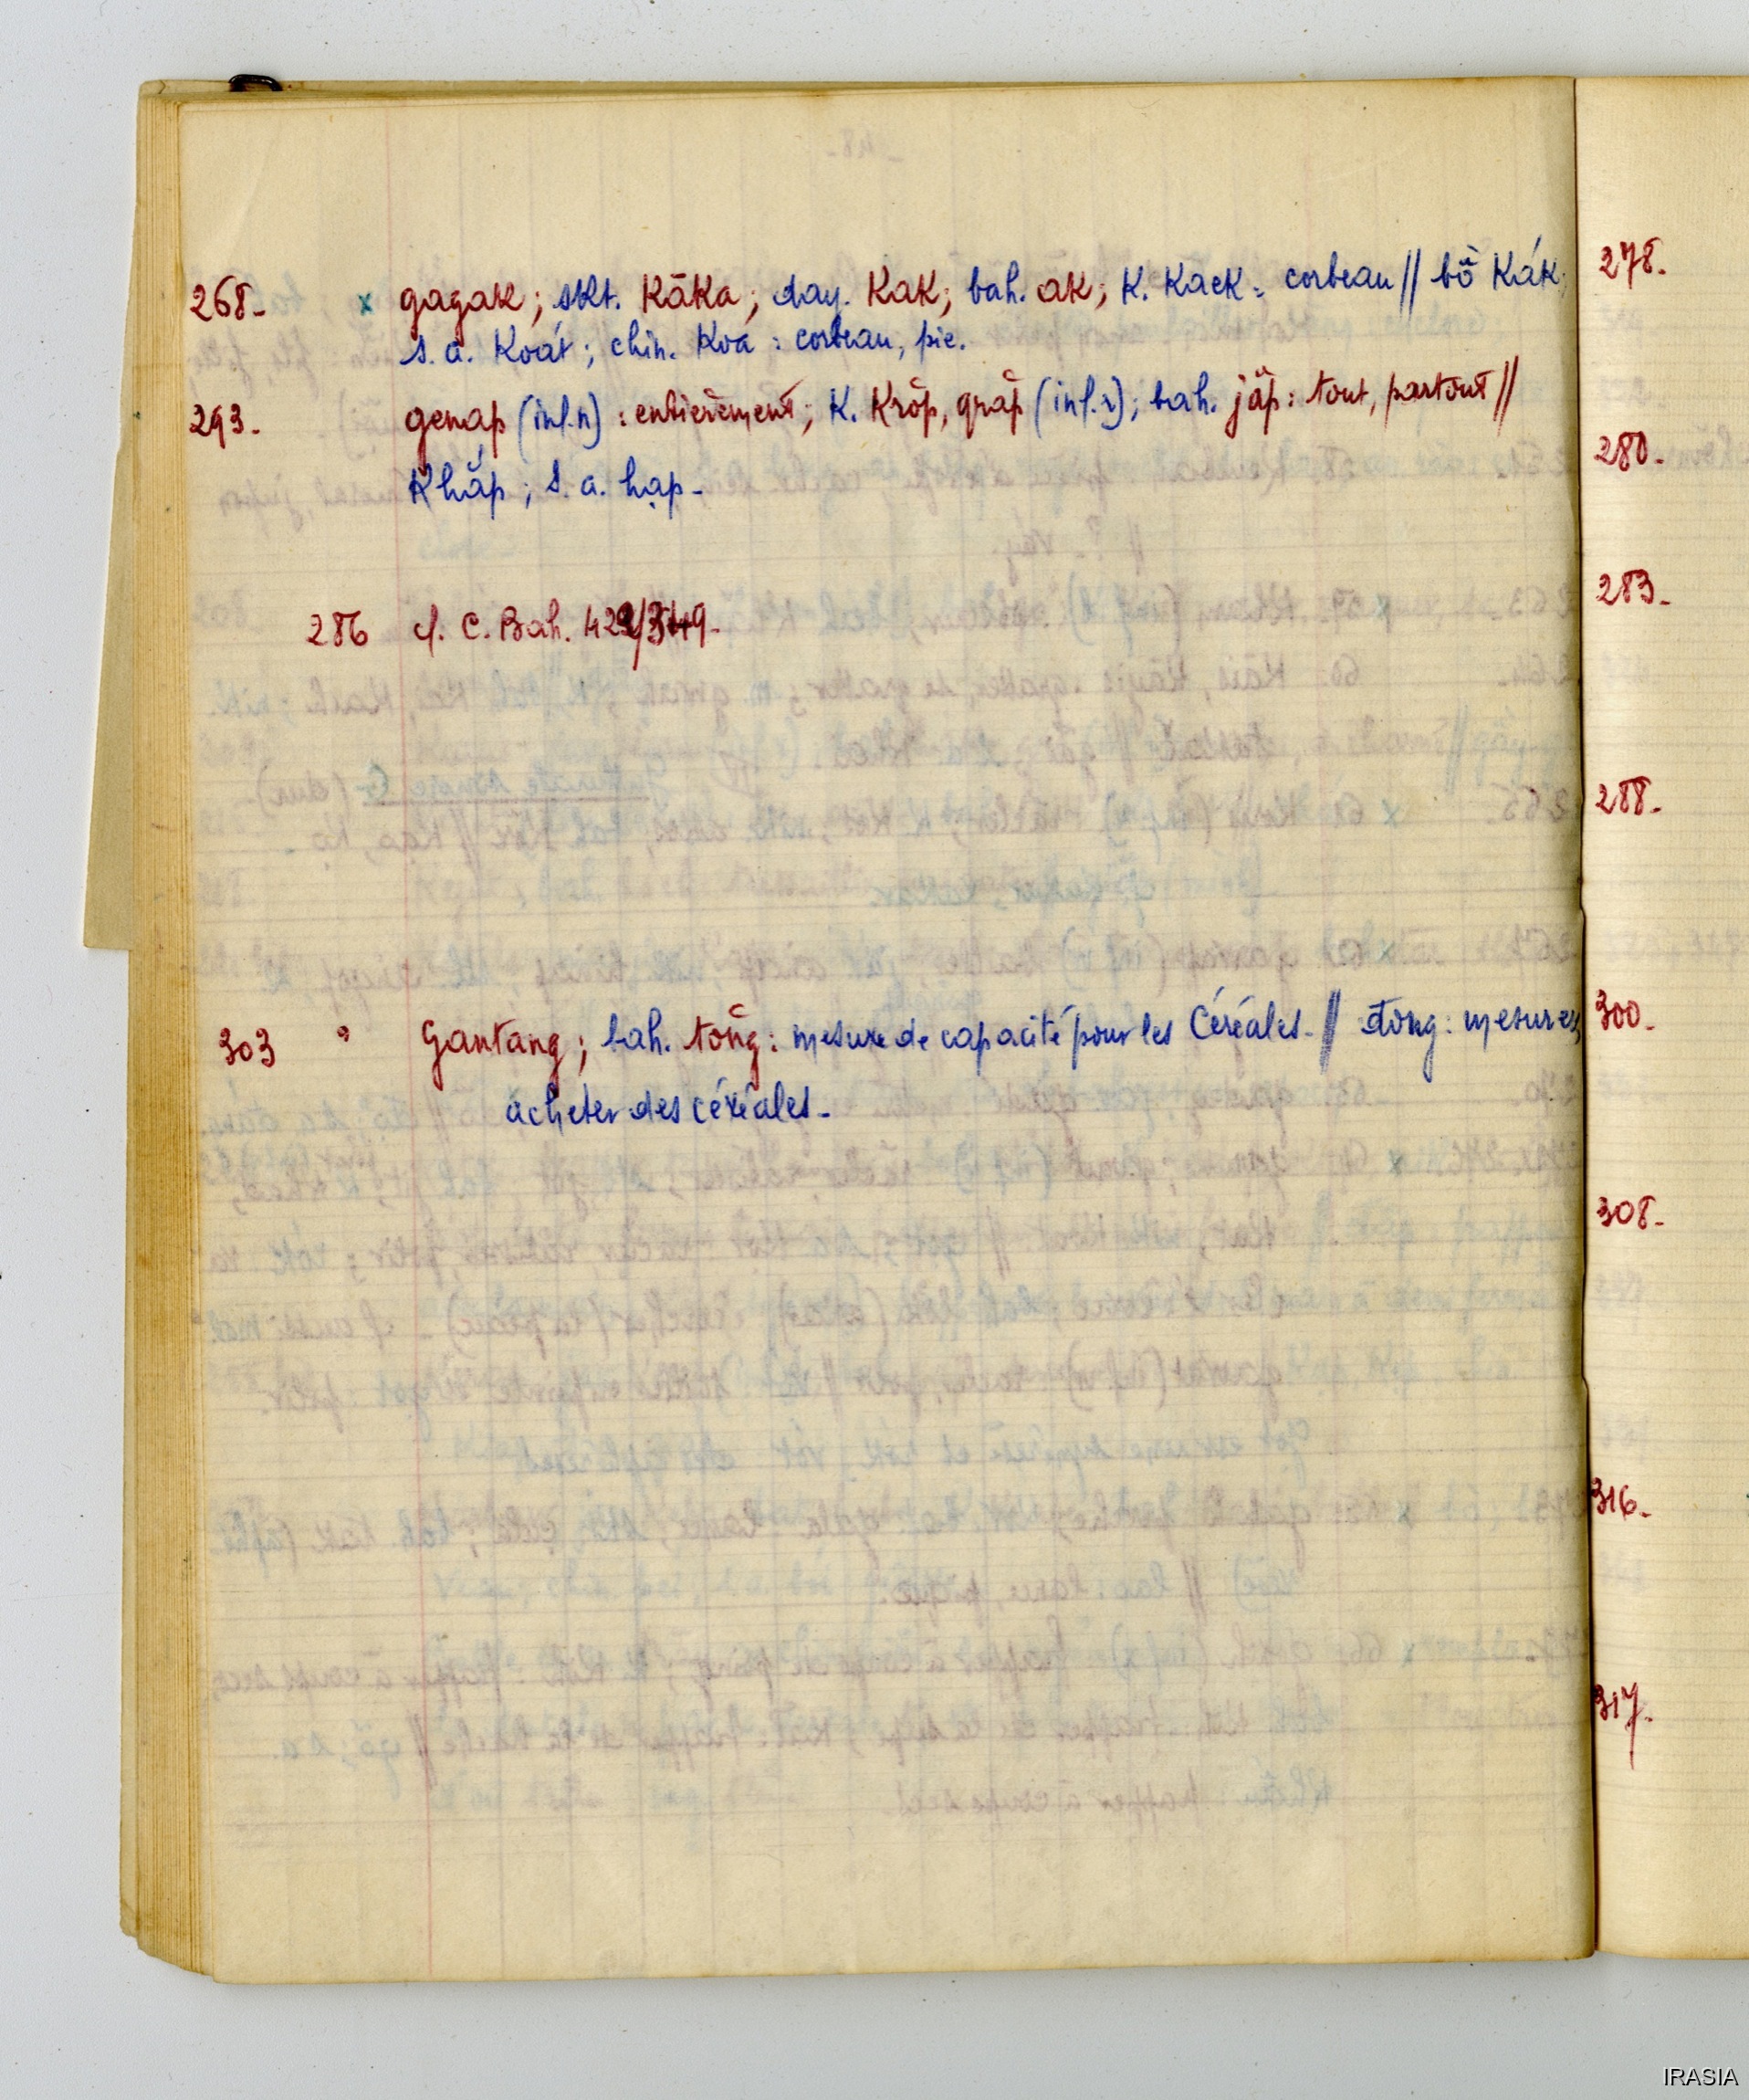 268. x gagak; skt. Kāka; day. Kak; bah. ak; K. Kaek: corbeau // bồ Kák;
s.a. Koát; chin. Koa: corbeau, pie.
293. genap (inf.n): entièrement; K. Kröp, gräp (inf.r); bah. jăp: tout, partout //
Khắp; s.a. hạp.
286 cf. C. Bah.
303 Gantang; bah. tŏng: mesure de capacité pour les Céréales. // đong: mesurer,
acheter des céréales.
278.
280.
283.
288.
300.
308.
316.
317.
IRASIA